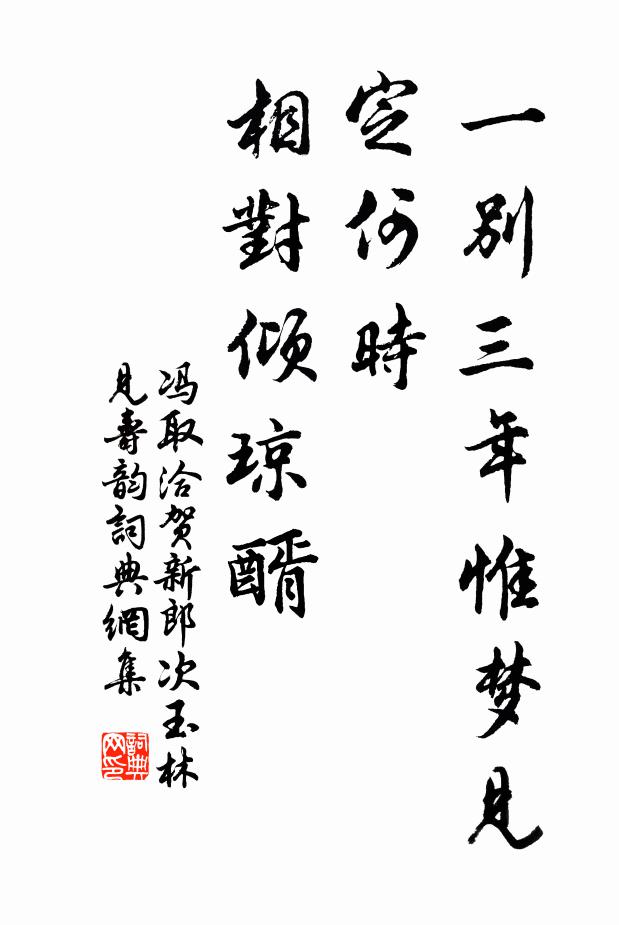 一别三年惟梦见
定何時
相對傾琼醑
冯取洽贺新郎次玉林
見壽韵詞典網集
詞典网印